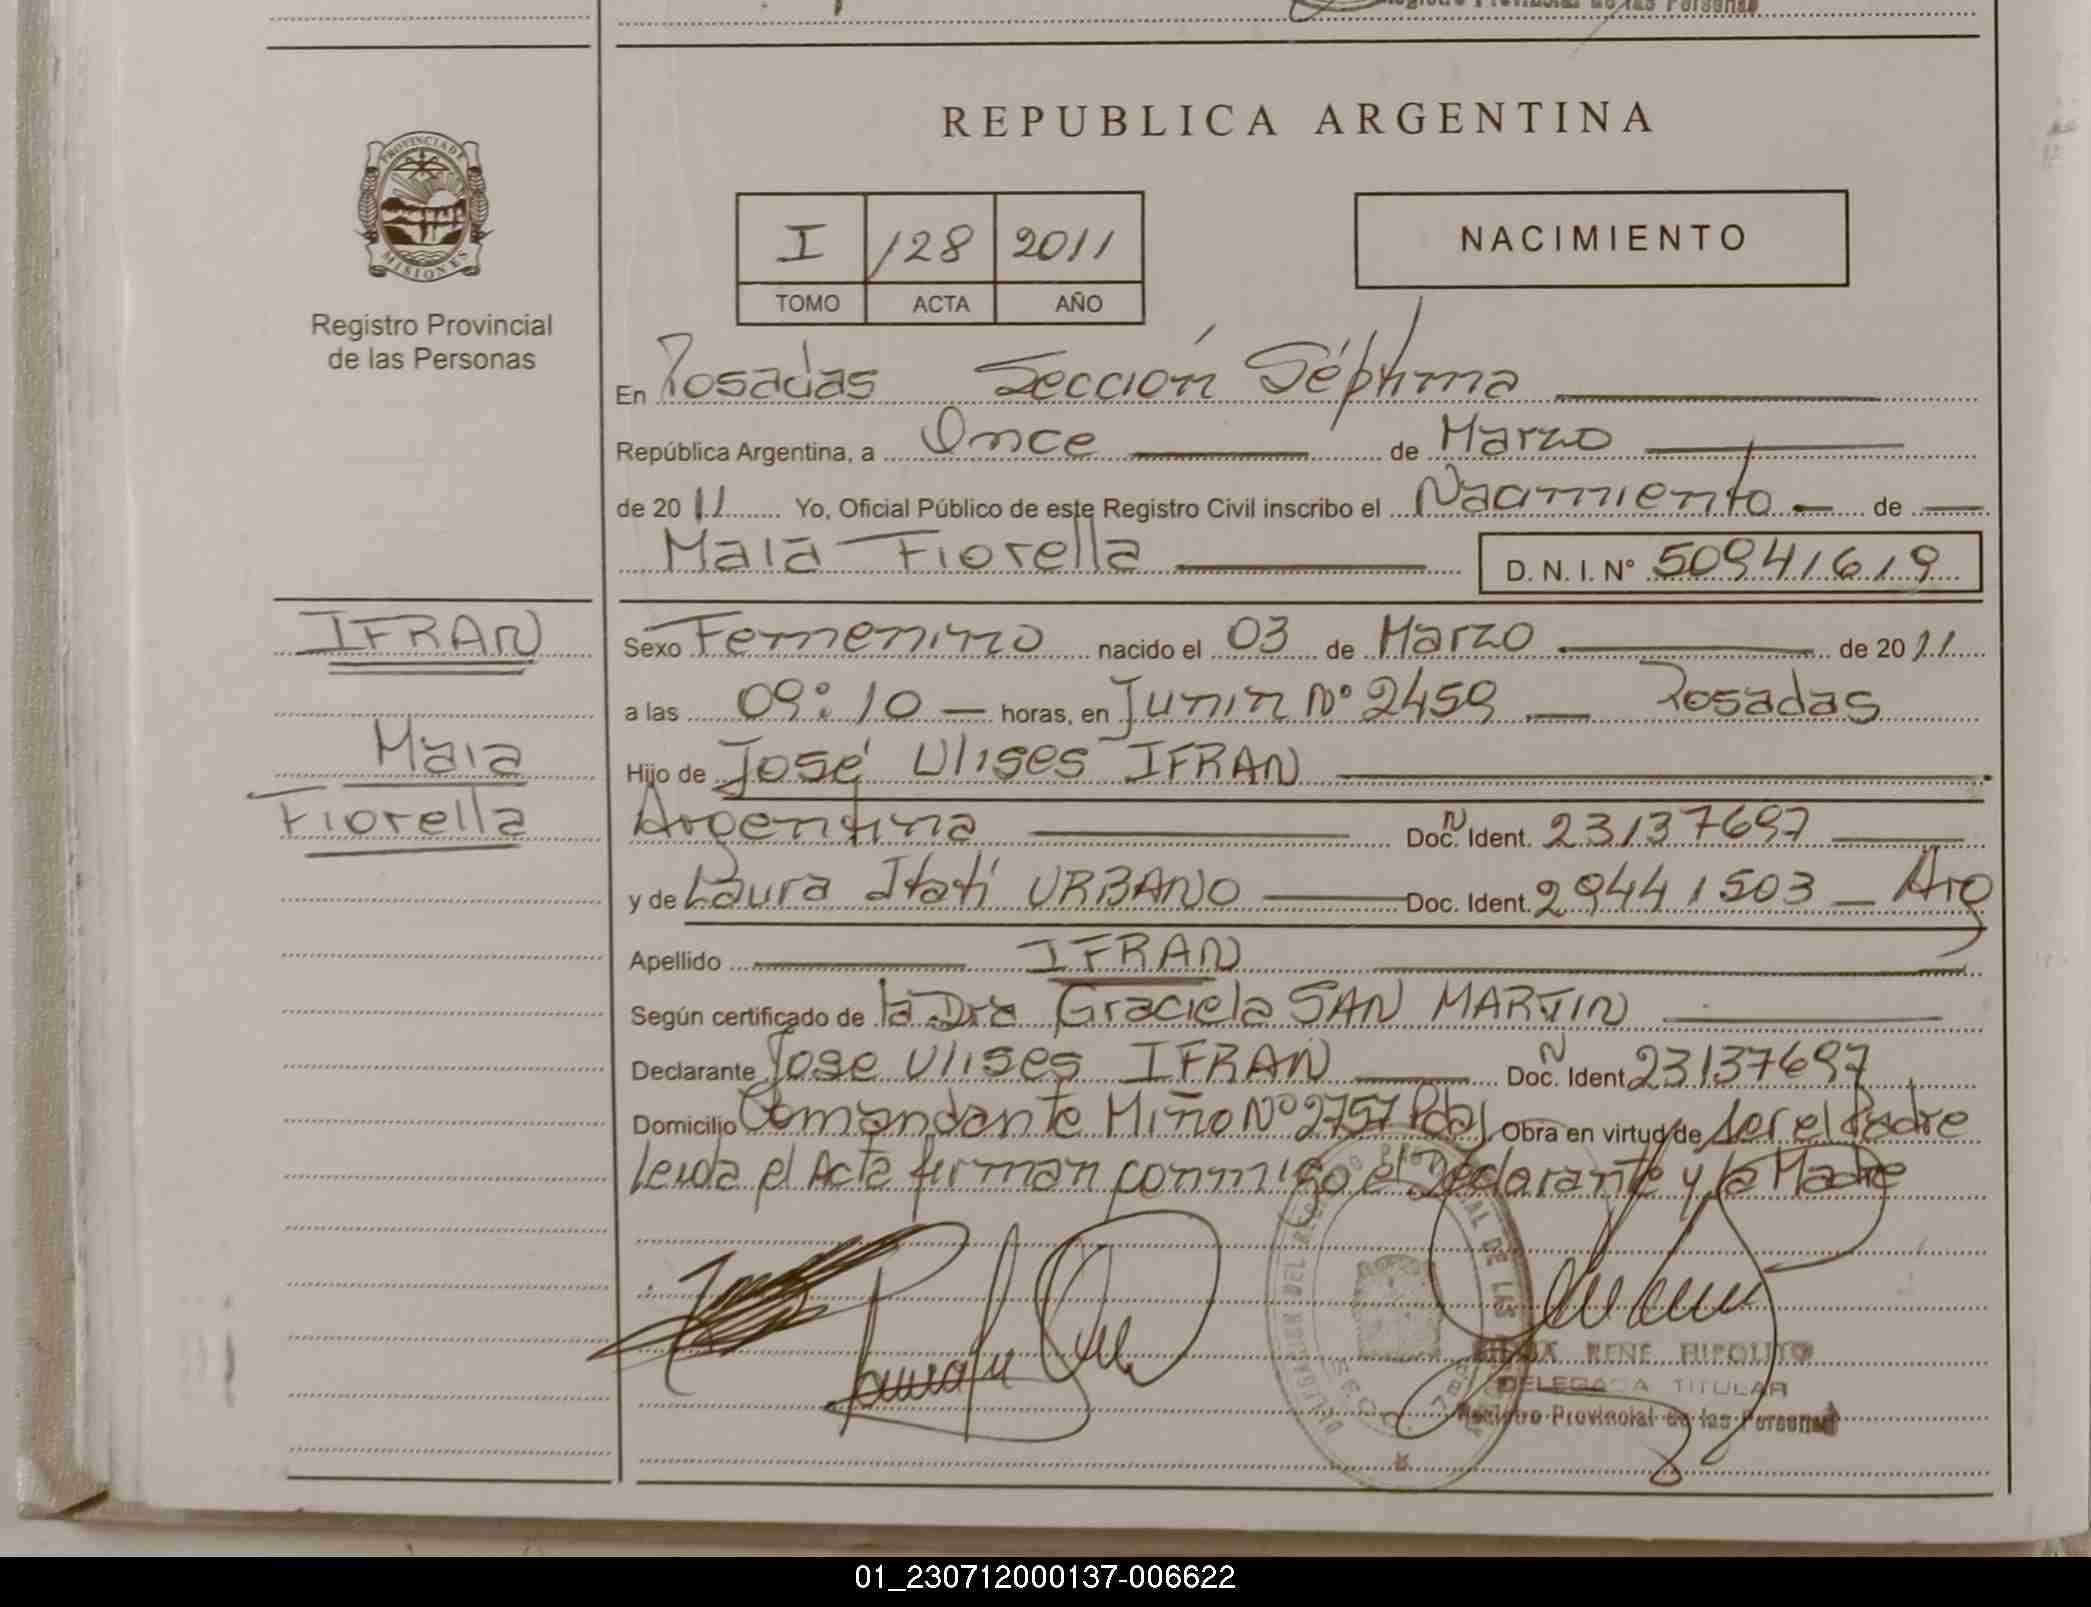 REPUBLICA ARGENTINA
PROVINCIA DE
MISIONES
Registro Provincial
de las Personas
I 128 2011
TOMO ACTA AÑO
NACIMIENTO
En Posadas Sección Séptima
República Argentina, a Once de Marzo
de 2011 Yo, Oficial Público de este Registro Civil inscribo el Nacimiento de
Maia Fiorella D. N. I. N° 50941619
IFRAN
Maia
Fiorella
Sexo Femenino nacido el 03 de Marzo de 2011
a las 09:10 horas, en Junin N° 2459 Posadas
Hijo de José Ulises IFRAN
Argentina Doc. N Ident. 23137697
y de Laura Itatí URBANO Doc. Ident. 29441503 Arg
Apellido IFRAN
Según certificado de la Dra Graciela SAN MARTIN
Declarante Jose Ulises IFRAN Doc. N Ident 23137697
Domicilio Comandante Miño N° 2757 Pdas Obra en virtud de ser el Padre
leida el Acta firman conmigo el Declarante y la Madre
RENE HIPOLITO
DELEGADA TITULAR
Registro Provincial de las Personas
01_230712000137-006622